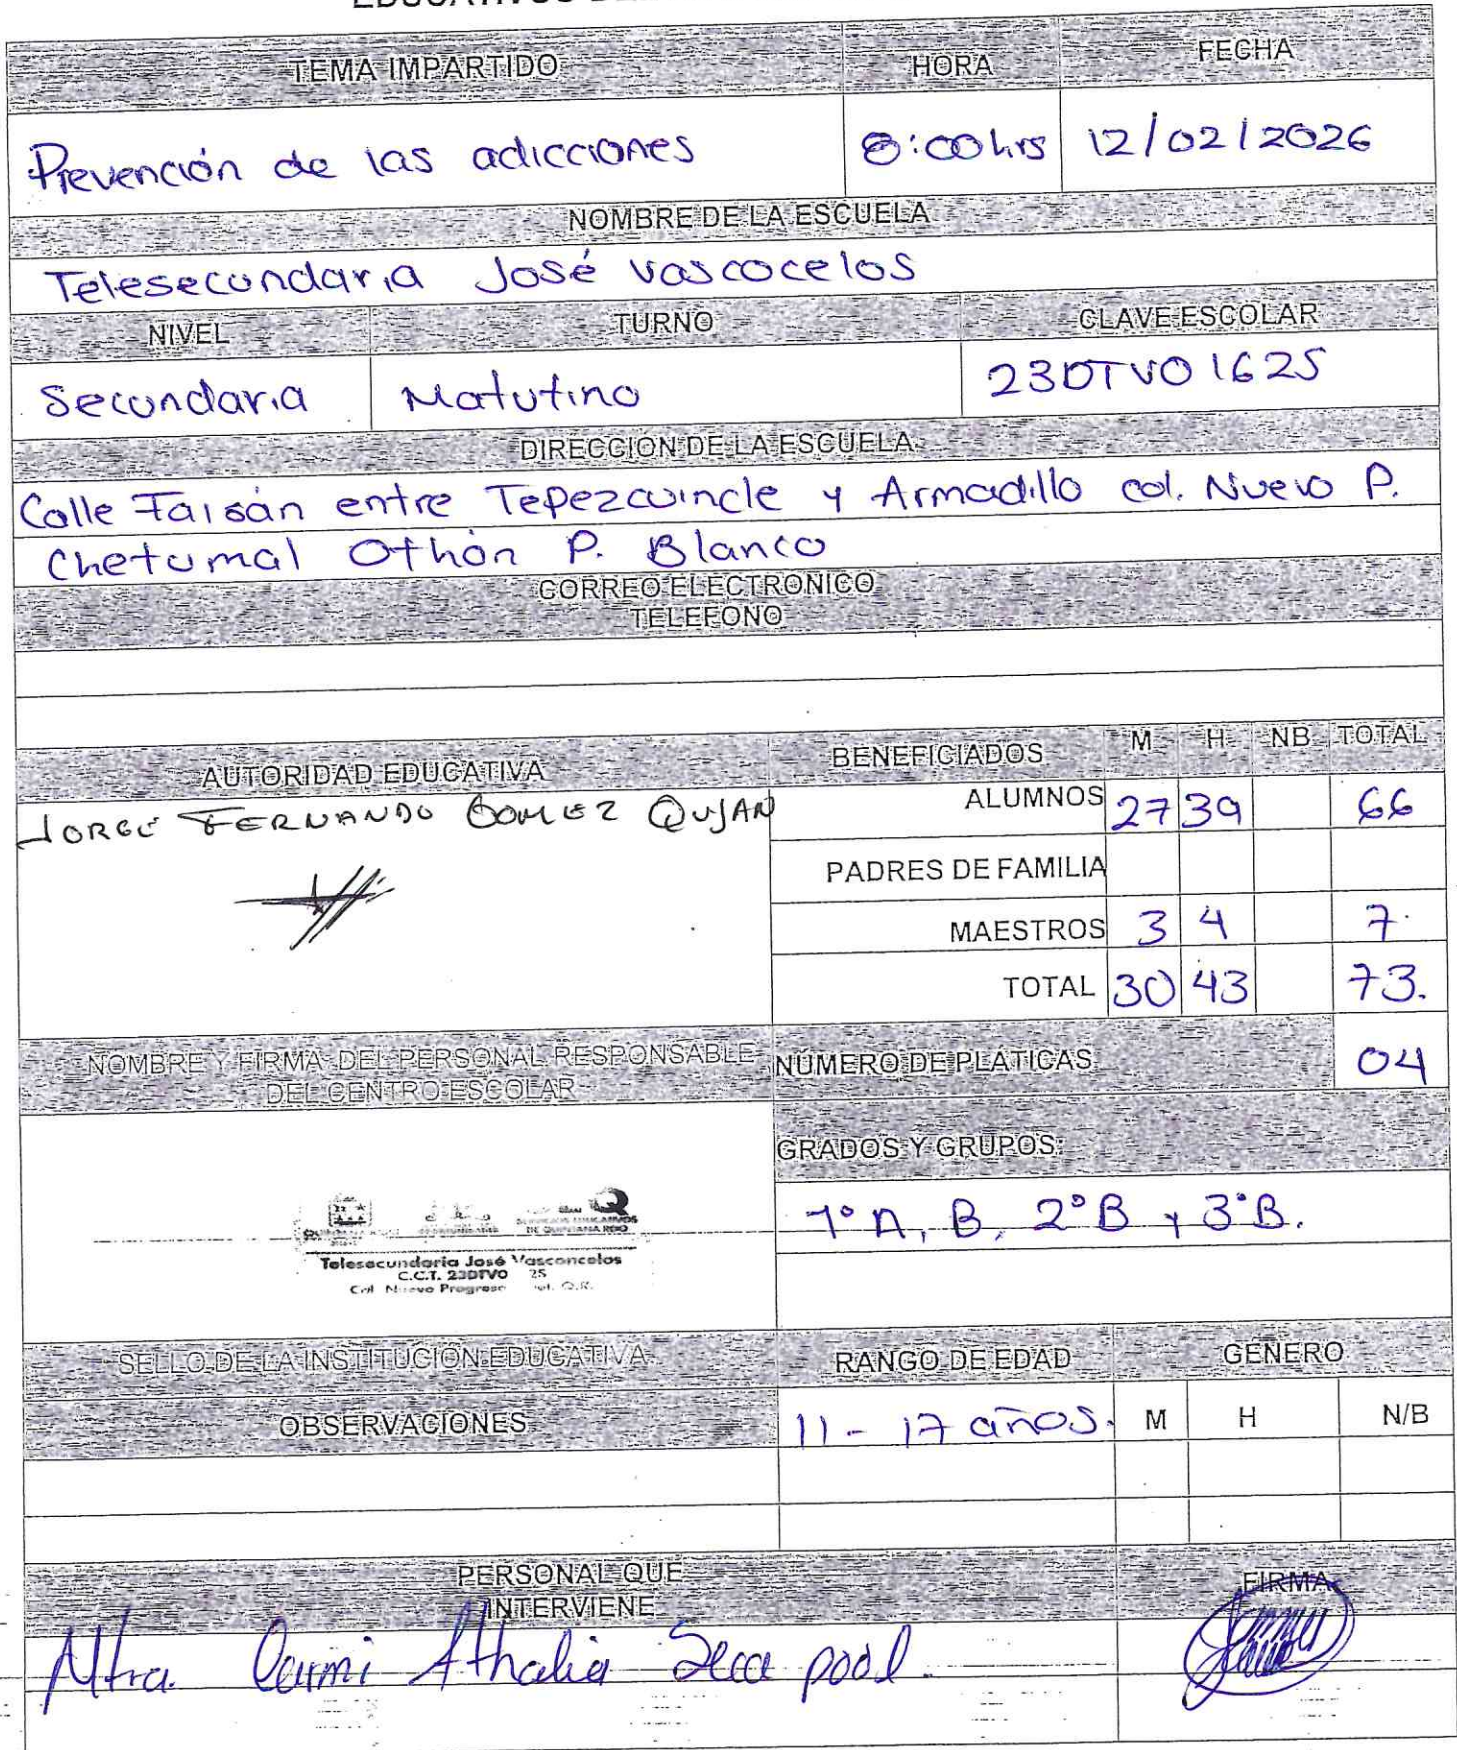 TEMA IMPARTIDO HORA FECHA
Prevención de las adicciones 8:00 hrs 12/02/2026
NOMBRE DE LA ESCUELA
Telesecundaria José vascocelos
NIVEL TURNO CLAVE ESCOLAR
Secundaria Matutino 23DTV0162S
DIRECCIÓN DE LA ESCUELA
Calle Faisán entre Tepezcuincle y Armadillo col. Nuevo P.
Chetumal Othón P. Blanco
CORREO ELECTRONICO
TELEFONO
AUTORIDAD EDUCATIVA BENEFICIADOS M H NB TOTAL
JORGE FERNANDO GOMEZ QUJAN ALUMNOS 27 39 66
PADRES DE FAMILIA
MAESTROS 3 4 7.
TOTAL 30 43 73.
NOMBRE Y FIRMA DEL PERSONAL RESPONSABLE DEL CENTRO ESCOLAR NÚMERO DE PLATICAS 04
GRADOS Y GRUPOS:
1° A, B, 2° B y 3° B.
SERVICIOS EDUCATIVOS
DE QUINTANA ROO
Telesecundaria José Vasconcelos
C.C.T. 23DTV0 25
Col. Nuevo Progreso Q.R.
SELLO DE LA INSTITUCIÓN EDUCATIVA RANGO DE EDAD GENERO
OBSERVACIONES 11 - 17 años. M H N/B
PERSONAL QUE INTERVIENE FIRMA
Mtra. Carmi Athalia pool.